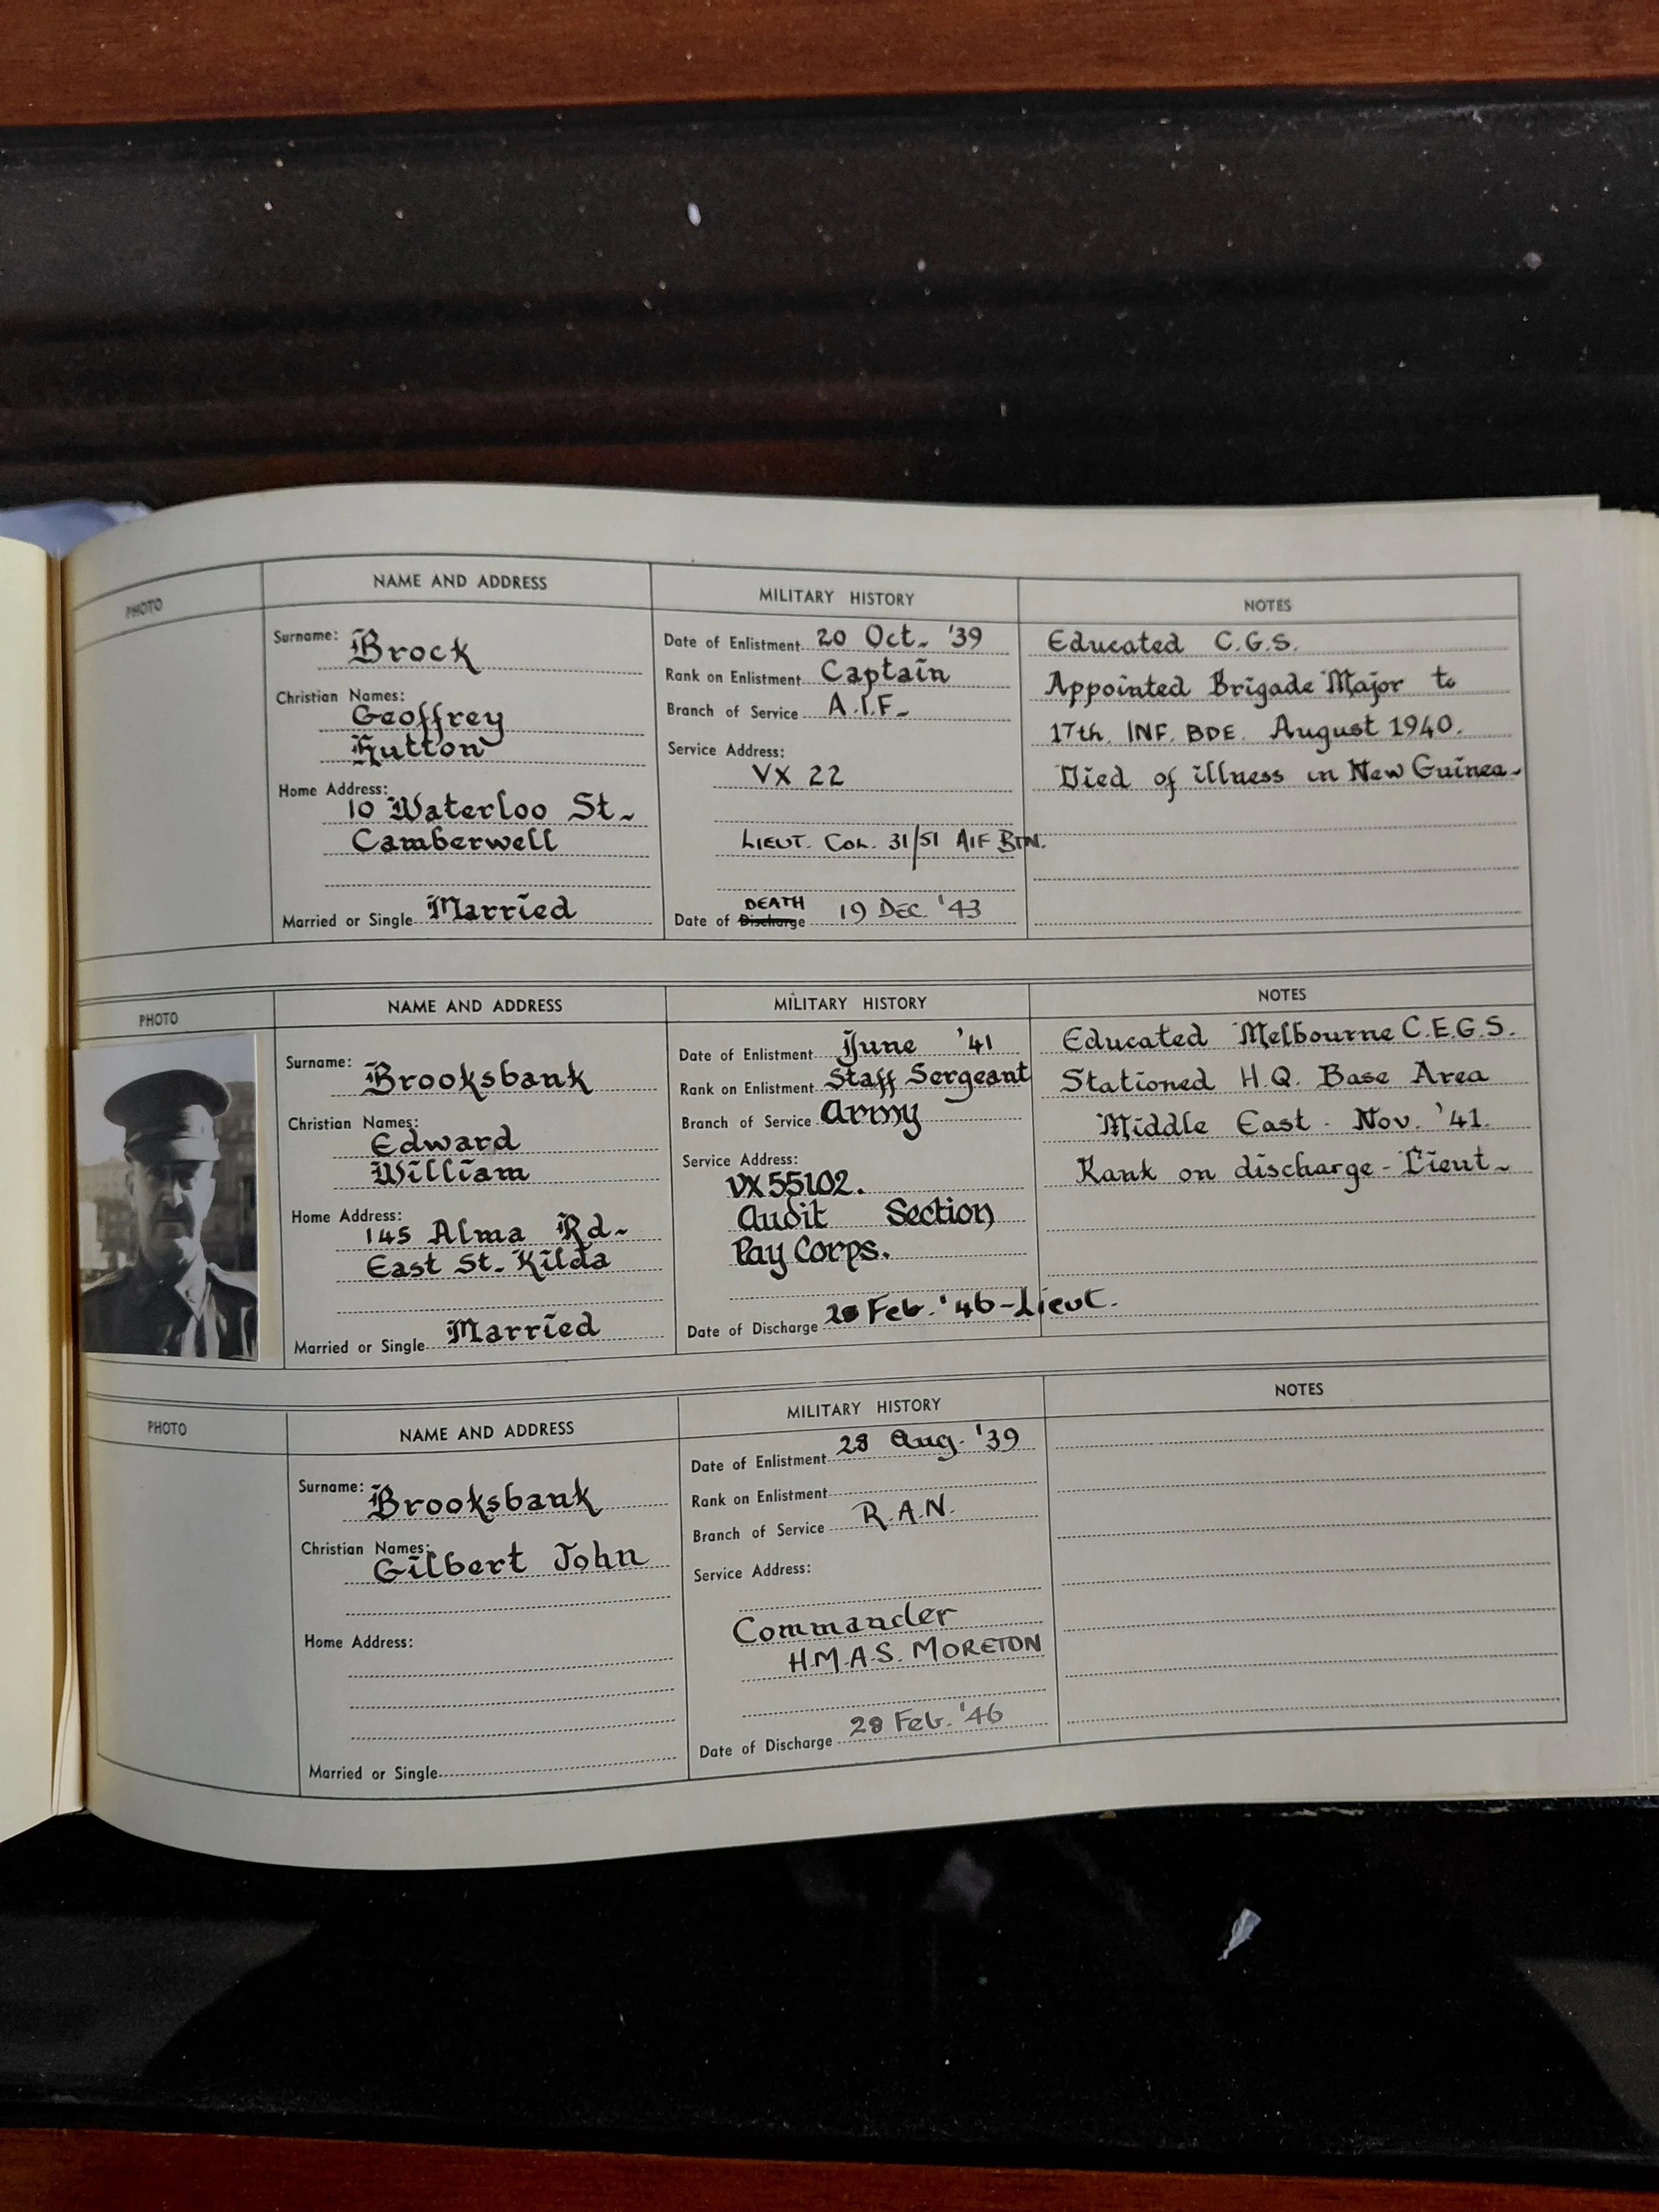 PHOTO
NAME AND ADDRESS
MILITARY HISTORY
NOTES
Surname: Brock
Christian Names:
Geoffrey
Hutton
Home Address:
10 Waterloo St.
Camberwell
Married or Single Married
Date of Enlistment 20 Oct. '39
Rank on Enlistment Captain
Branch of Service A.I.F.
Service Address:
VX 22
LIEUT. COL. 31/51 AIF BTN.
DEATH
Date of Discharge 19 DEC. '43
Educated C.G.S.
Appointed Brigade Major to
17th. INF. BDE. August 1940.
Died of illness in New Guinea.
PHOTO
NAME AND ADDRESS
MILITARY HISTORY
NOTES
Surname: Brooksbank
Christian Names:
Edward
William
Home Address:
145 Alma Rd.
East St. Kilda
Married or Single Married
Date of Enlistment June '41
Rank on Enlistment Staff Sergeant
Branch of Service Army
Service Address:
VX 55102.
Audit Section
Pay Corps.
Date of Discharge 28 Feb. '46-Lieut.
Educated Melbourne C.E.G.S.
Stationed H.Q. Base Area
Middle East - Nov. '41.
Rank on discharge - Lieut.
PHOTO
NAME AND ADDRESS
MILITARY HISTORY
NOTES
Surname: Brooksbank
Christian Names:
Gilbert John
Home Address:
Married or Single
Date of Enlistment 28 Aug. '39
Rank on Enlistment
Branch of Service R.A.N.
Service Address:
Commander
H.M.A.S. MORETON
Date of Discharge 28 Feb. '46